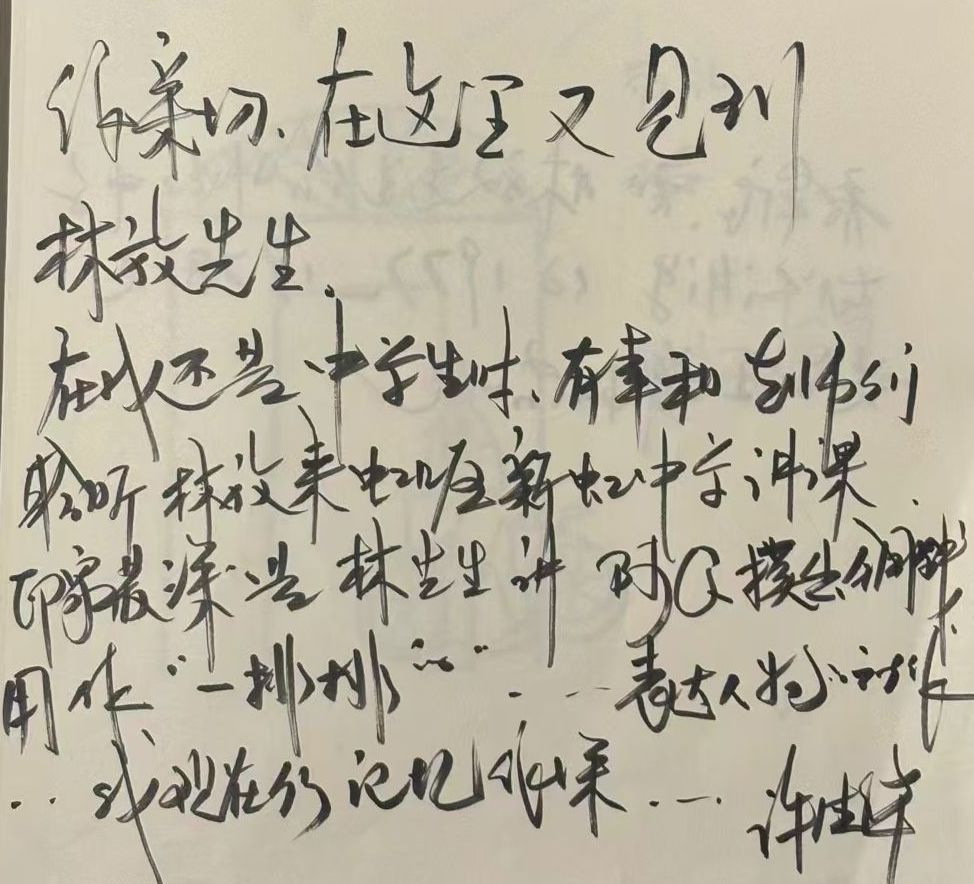 很亲切、在这里又见到
林放先生、
在我还是中学生时、有幸和老师们
聆听林放来虹口区新虹中学讲课、
印象最深是林先生讲阿Q摸出铜钱来
用作“一排排”……表达人物动作
……我现在仍记忆犹深……许